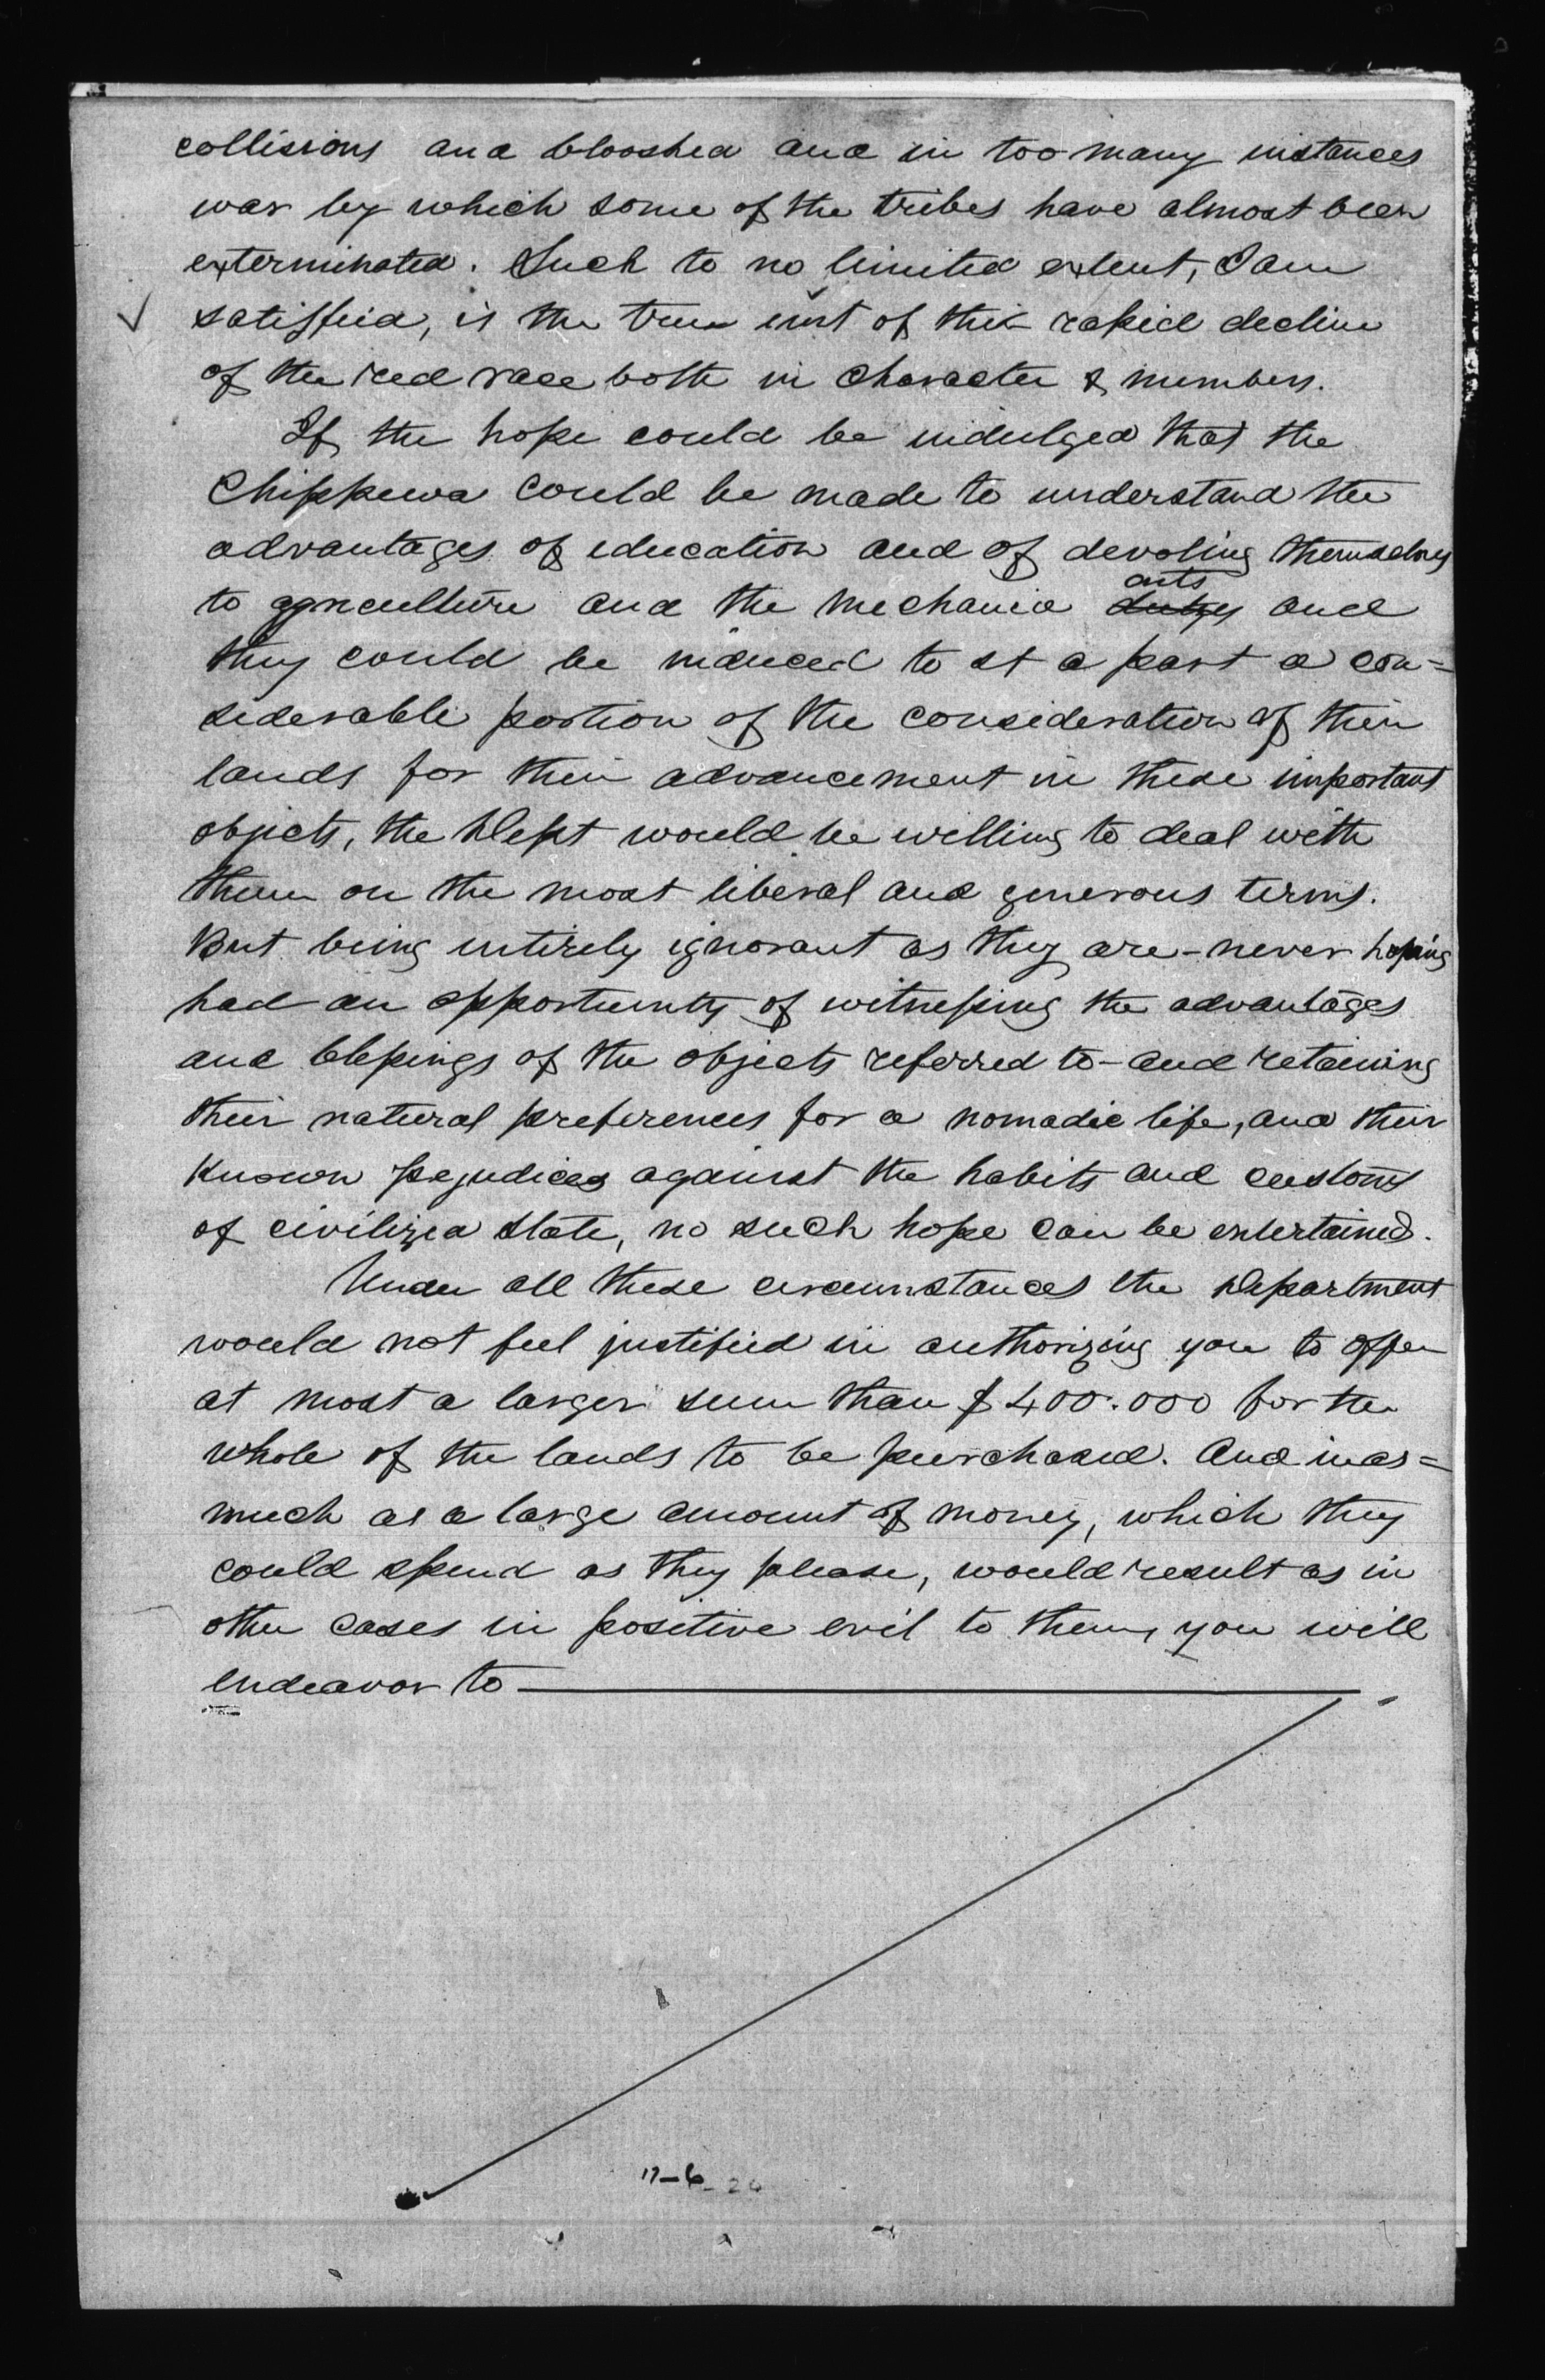 collisions and blooshed and in too many instances
war by which some of the tribes have almost been
exterminated. Such to no limited extent, I am
satisfied, is the true of this rapid decline
of the red race both in character & numbers.
If the hope could be indulged that the
Chippewa could be made to understand the
advantages of education and of devoting themselves
to agriculture and the mechanic arts and
they could be induced to st a part a con=
siderable portion of the consideration of their
lands for their advancement in these important
objects, the Dept would be willing to deal with
them on the most liberal and generous terms.
But being entirely ignorant as they are - never
had an opportunity of witnessing the advantages
and blessings of the objects referred to - and retaining
their natural preferences for a nomadic life, and their
known prejudices against the habits and customs
of civilized state, no such hope can be entertained.
Under all these circumstances the Department
would not feel justified in authorizing you to offer
at most a larger sum than $400.000 for the
whole of the lands to be purchased. And inas=
much as a large amount of money, which they
could spend as they please, would result as in
other cases in positive evil to them, you will
endeavor to